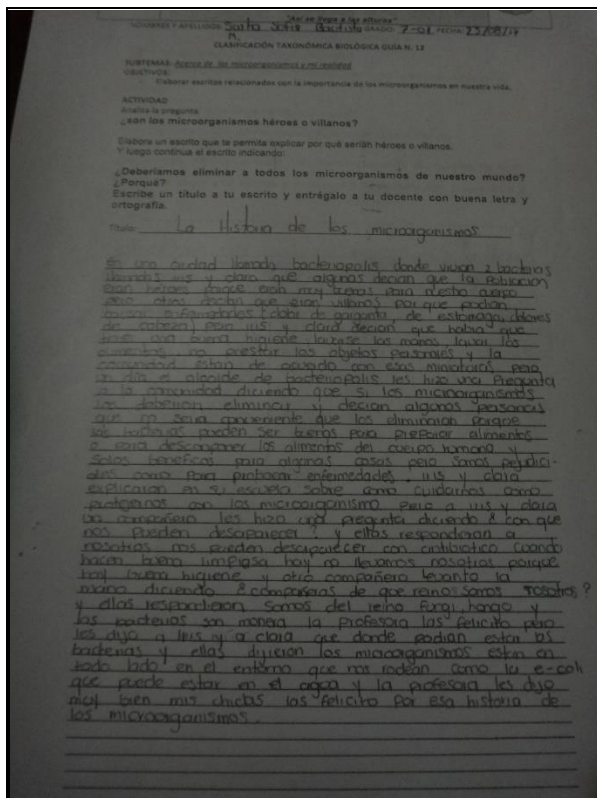 "Así se llega a las alturas"
NOMBRES Y APELLIDOS: Sofia Bautista GRADO: 7-01 FECHA: 23/08/17
CLASIFICACIÓN TAXONÓMICA BIOLÓGICA GUÍA N. 12
SUBTEMAS: Acerca de los microorganismos y mi realidad
OBJETIVOS:
Elaborar escritos relacionados con la importancia de los microorganismos en nuestra vida.
ACTIVIDAD
Analiza la pregunta
¿son los microorganismos héroes o villanos?
Elabora un escrito que te permita explicar por qué serían héroes o villanos.
Y luego continua el escrito indicando:
¿Deberíamos eliminar a todos los microorganismos de nuestro mundo?
¿Porqué?
Escribe un título a tu escrito y entrégalo a tu docente con buena letra y
ortografía.
Título: La Historia de los microorganismos
En una ciudad llamada bacteriopolis donde vivian 2 bacterias
llamadas iris y clara que algunas decian que la Poblacion
eran heroes porque eran muy buenos para nuestro cuerpo
pero otros decian que eran villanos por que podian
causar enfermedades (dolor de garganta, de estomago, dolores
de cabeza) pero iris y clara decian que habia que
tener una buena higiene lavarse las manos, lavar los
alimentos, no prestar los objetos personales y la
comunidad estan de acuerdo con esas pero
un dia el alcalde de bacteriopolis les hizo una Pregunta
a la comunidad diciendo que si los microorganismos
los deberian eliminar y decian algunas personas
que no seria conveniente que los eliminaran porque
las bacterias pueden ser buenas para preparar alimentos
o para descomponer los alimentos del cuerpo humano y
solos beneficas para algunas cosas pero somos prejudici-
ales como para probocar enfermedades. iris y clara
explicaron en su escuela sobre como cuidarnos como
protejernos con los microorganismo pero a iris y clara
un compañero les hizo una pregunta diciendo ¿con que
nos pueden desaparecer? y ellas respondieron a
nosotras nos pueden desaparecer con antibiotico cuando
hacen buena limpiesa hay no llevamos nosotras porque
hay buena higiene y otro compañero levanto la
mano diciendo ¿compañeras de que reino somos nosotras?
y ellas respondieron somos del reino fungi, hongo y
las bacterias son monera la profesora las felicito pero
les dijo a iris y a clara que donde podian estar las
bacterias y ellas dijeron los microorganismos estan en
todo lado en el entorno que nos rodean como la e-coli
que puede estar en el agua y la profesora les dijo
muy bien mis chicas las felicito por esa historia de
los microorganismos.